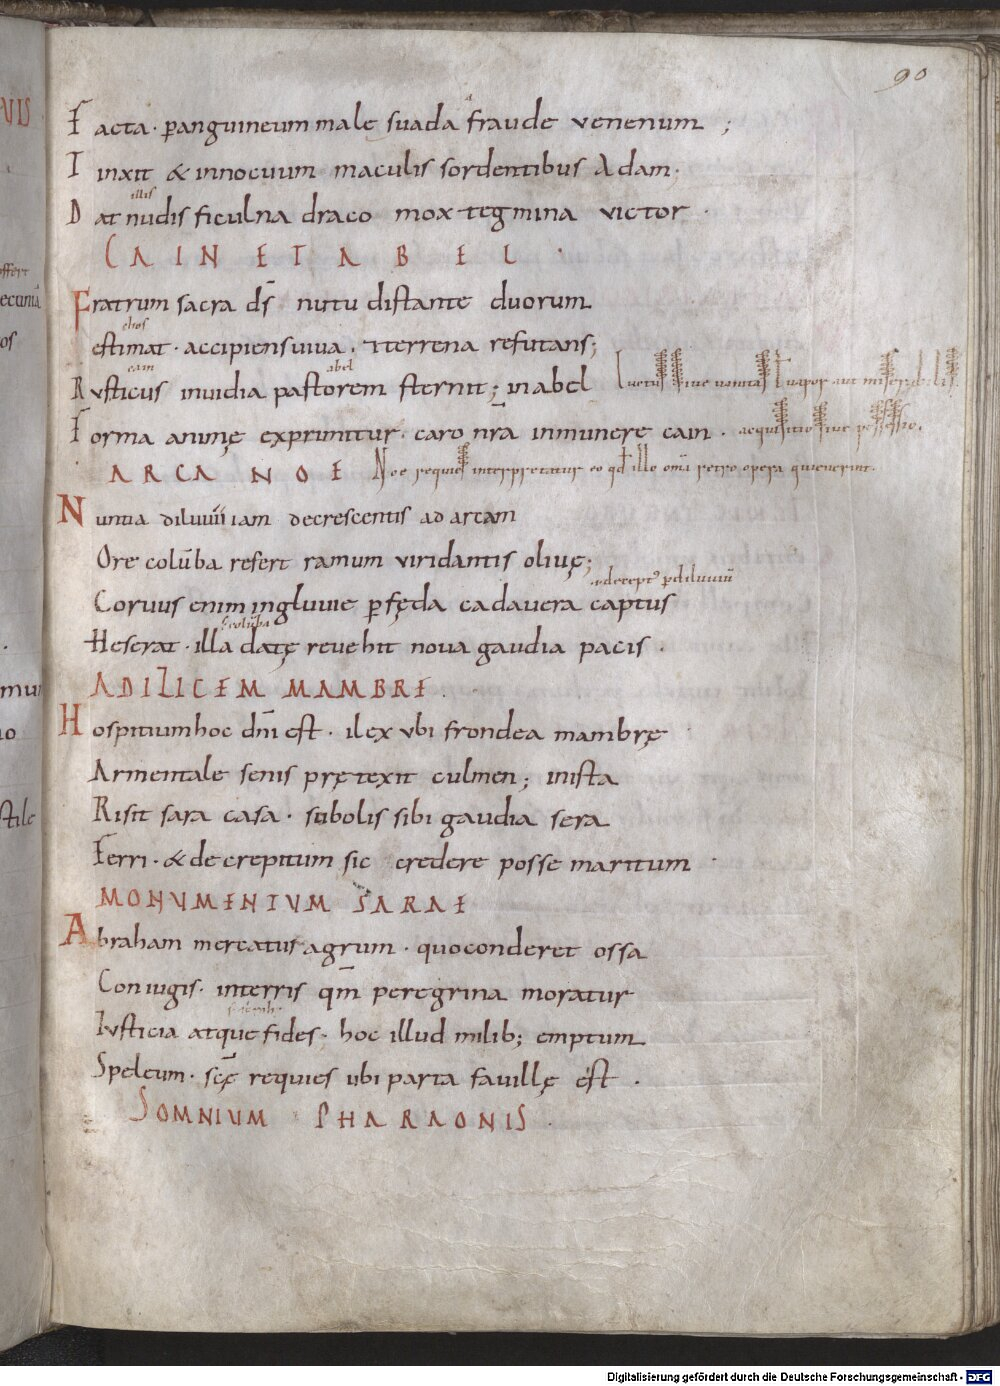 90
Facta · ꝑanguineum male suada fraude venenum ;
Tinxit & innocuum maculis sordentibus Adam·
illis
Dat nudis ficulna draco mox tegmina victor ·
CAIN ET ABEL ·
Fratrum sacra dſ̄ nutu distante duorum
estimat · accipiens viva , terrena refutans;
Rusticus invidia pastorem sternit; in abel
abel
Luctus sive vanitas t vapor aut miserabilis
Forma animę exprimitur · caro nr̄a inmunere cain · acquisitio sive possessio.
ARCA NOE Noe requies interpretatur eo qd illo om̄ retro opera quieverint·
Nuntia diluvii iam decrescentis ad arcam
Ore colūba refert ramum viridantis olivę;
Corvus enim ingluvie ꝑ fęda cadavera captus
colūba
Heserat · illa datę revehit nova gaudia pacis ·
AD ILICEM MAMBRE ·
Hospitium hoc dn̄i est · ilex ubi frondea mambrę
Armentale senis prętexit culmen; inista
Risit sara casa · subolis sibi gaudia sera
Ferri · & decrepitum sic credere posse maritum
MONUMENTUM SARAE
Abraham mercatus agrum · quo conderet ossa
Coniugis · interris qm̄ peregrina moratur
Iusticia atque fides · hoc illud milib; emptum
Speleum · scę̄ requies ubi parta favillę est ·
SOMNIUM PHARAONIS
Digitalisierung gefördert durch die Deutsche Forschungsgemeinschaft - DFG